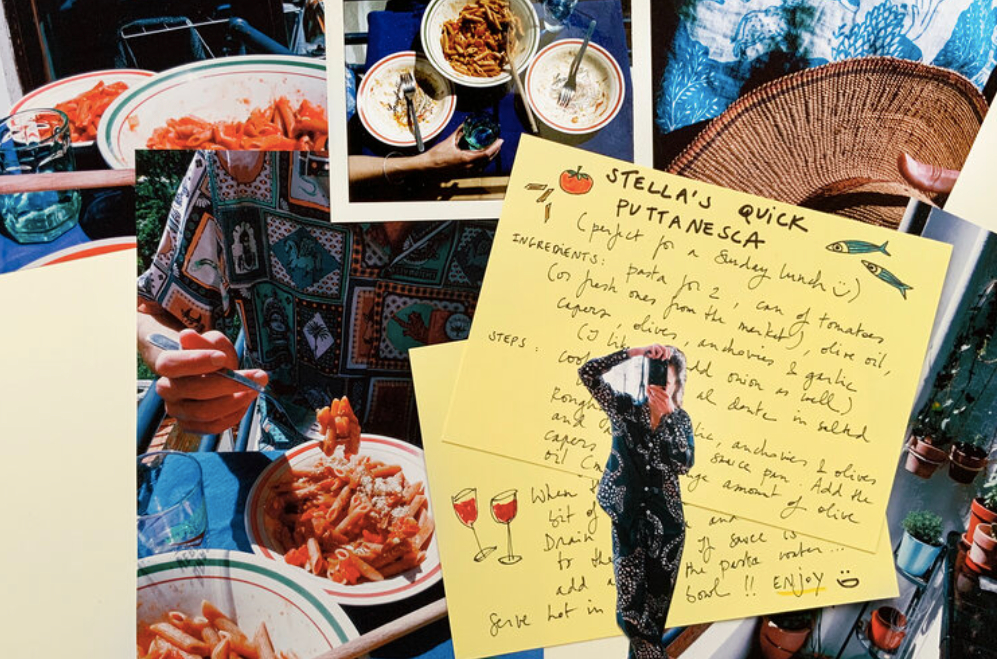 STELLA'S QUICK
PUTTANESCA
(perfect for a Sunday lunch ☺)
INGREDIENTS: pasta for 2, can of tomatoes
(or fresh ones from the market), olive oil,
capers, olives, anchovies & garlic
(I like add onion as well)
STEPS: al dente in salted
and anchovies & olives
capers sauce pan. Add the
oil amount of olive
When
bit of and
Drain If sauce is
to the the pasta water...
add bowl !! ENJOY ☺
Serve hot in